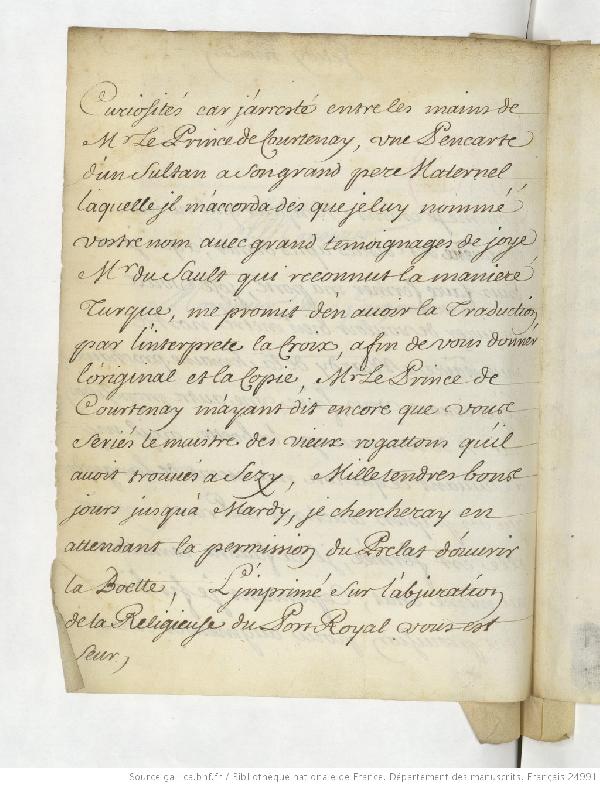 Curiosités car j'arresté entre les mains de
Mr Le Prince de Courtenay, vne Pencarte
d'un Sultan a son grand pere Maternel
laquelle jl m'accorda des que je luy nommé
vostre nom auec grand temoignages de joye
Mr du Sault qui reconnut la maniere
Turque, me promit d'en auoir la Traduction
par l'interprete la Croix, afin de vous donner
l'original et la Copie, Mr Le Prince de
Courtenay m'ayant dit encore que vous
Seriés le maistre des vieux rogattons qu'il
auoit trouués a Sezy, Mille tendres bons
jours jusqu'à Mardy, je chercheray en
attendant la permission du Prelat d'ouurir
la Boette, L'imprimé sur l'abjuration
de la Religieuse du Port Royal vous est
seur,
Source gallica.bnf.fr / Bibliothèque nationale de France. Département des manuscrits. Français 24991